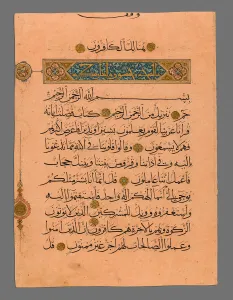 وقف
هنالك الكافرون
بسم الله الرحمن الرحيم
حم تنزيل من الرحمن الرحيم كتاب فصلت آياته
قرآنا عربيا لقوم يعلمون بشيرا ونذيرا فأعرض أكثر
هم فهم لا يسمعون وقالوا قلوبنا في أكنة مما تدعونا
إليه وفي آذاننا وقر ومن بيننا وبينك حجاب
فاعمل إننا عاملون قل إنما أنا بشر مثلكم
يوحى إلي أنما إلهكم إله واحد فاستقيموا إليه
واستغفروه وويل للمشركين الذين لا يؤتون
الزكاة وهم بالآخرة هم كافرون إن الذين آمنوا
وعملوا الصالحات لهم أجر غير ممنون قل